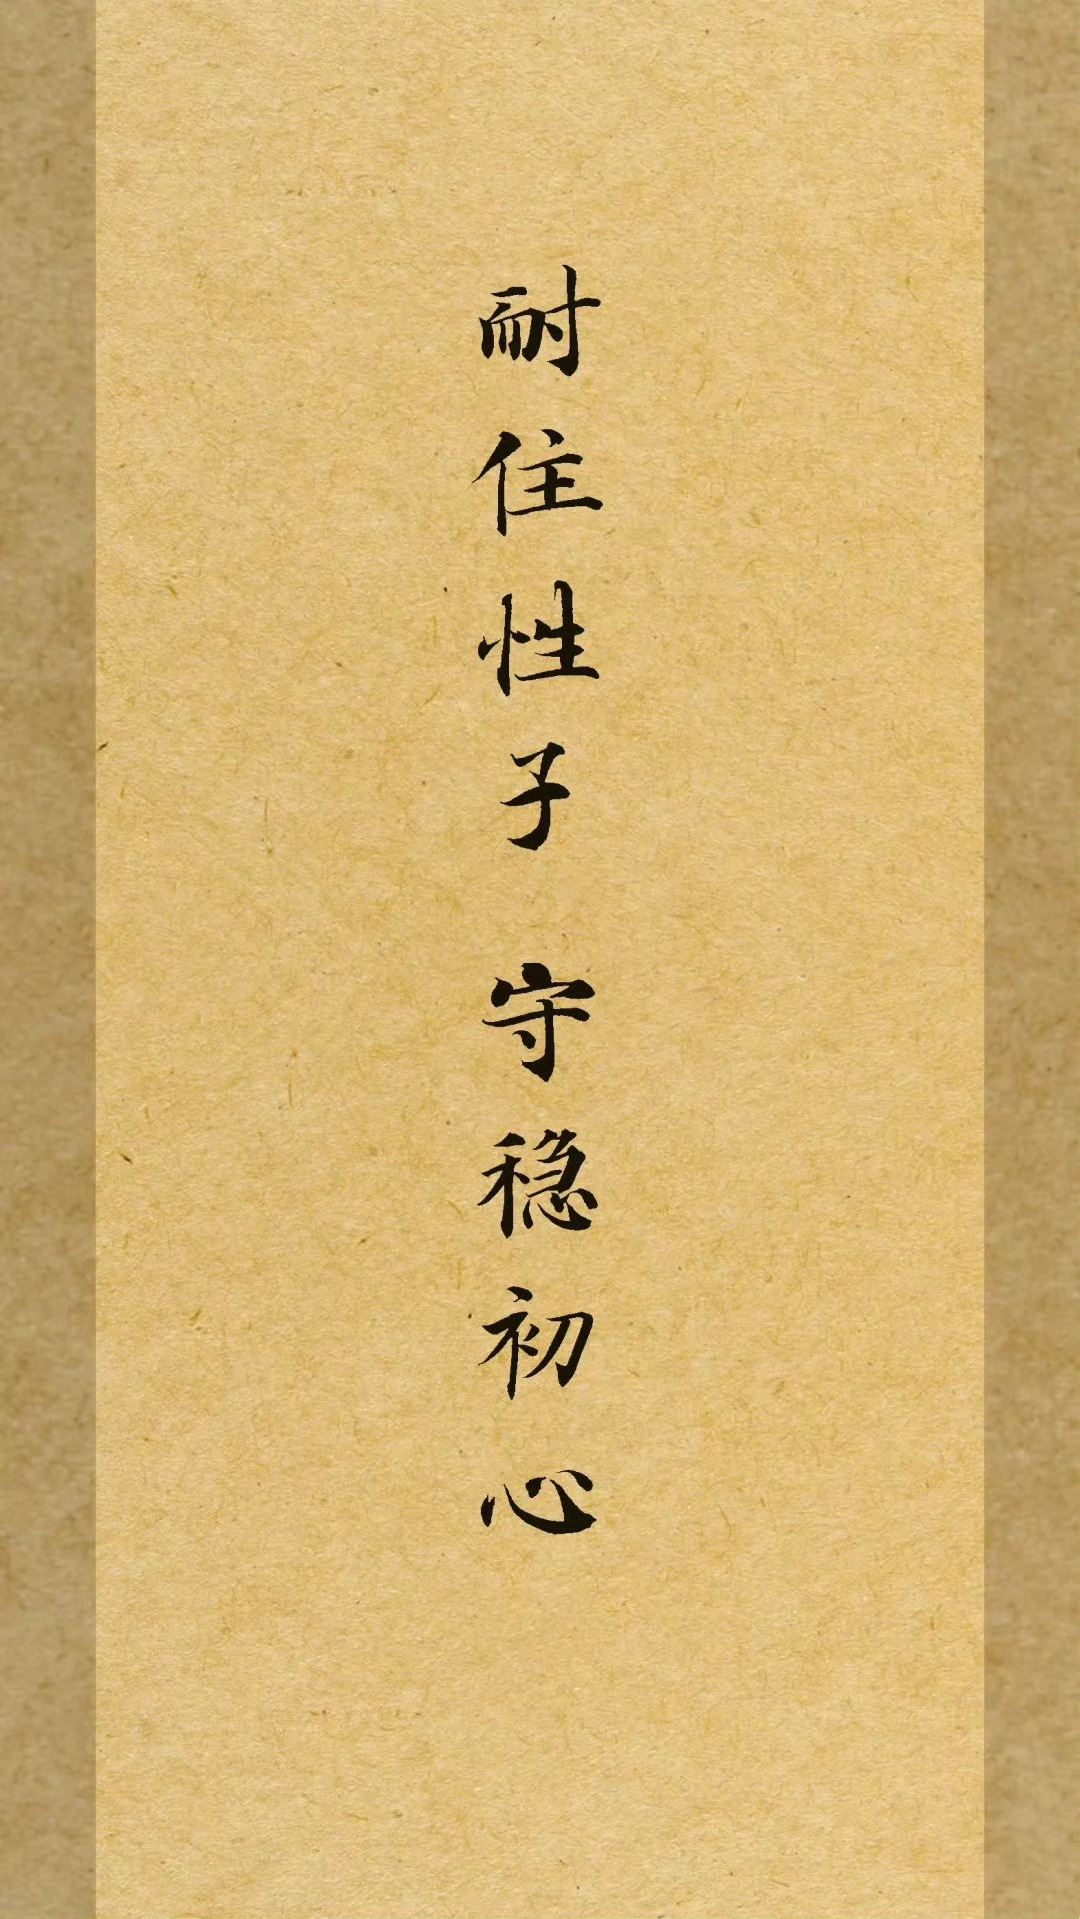 耐住性子 守稳初心